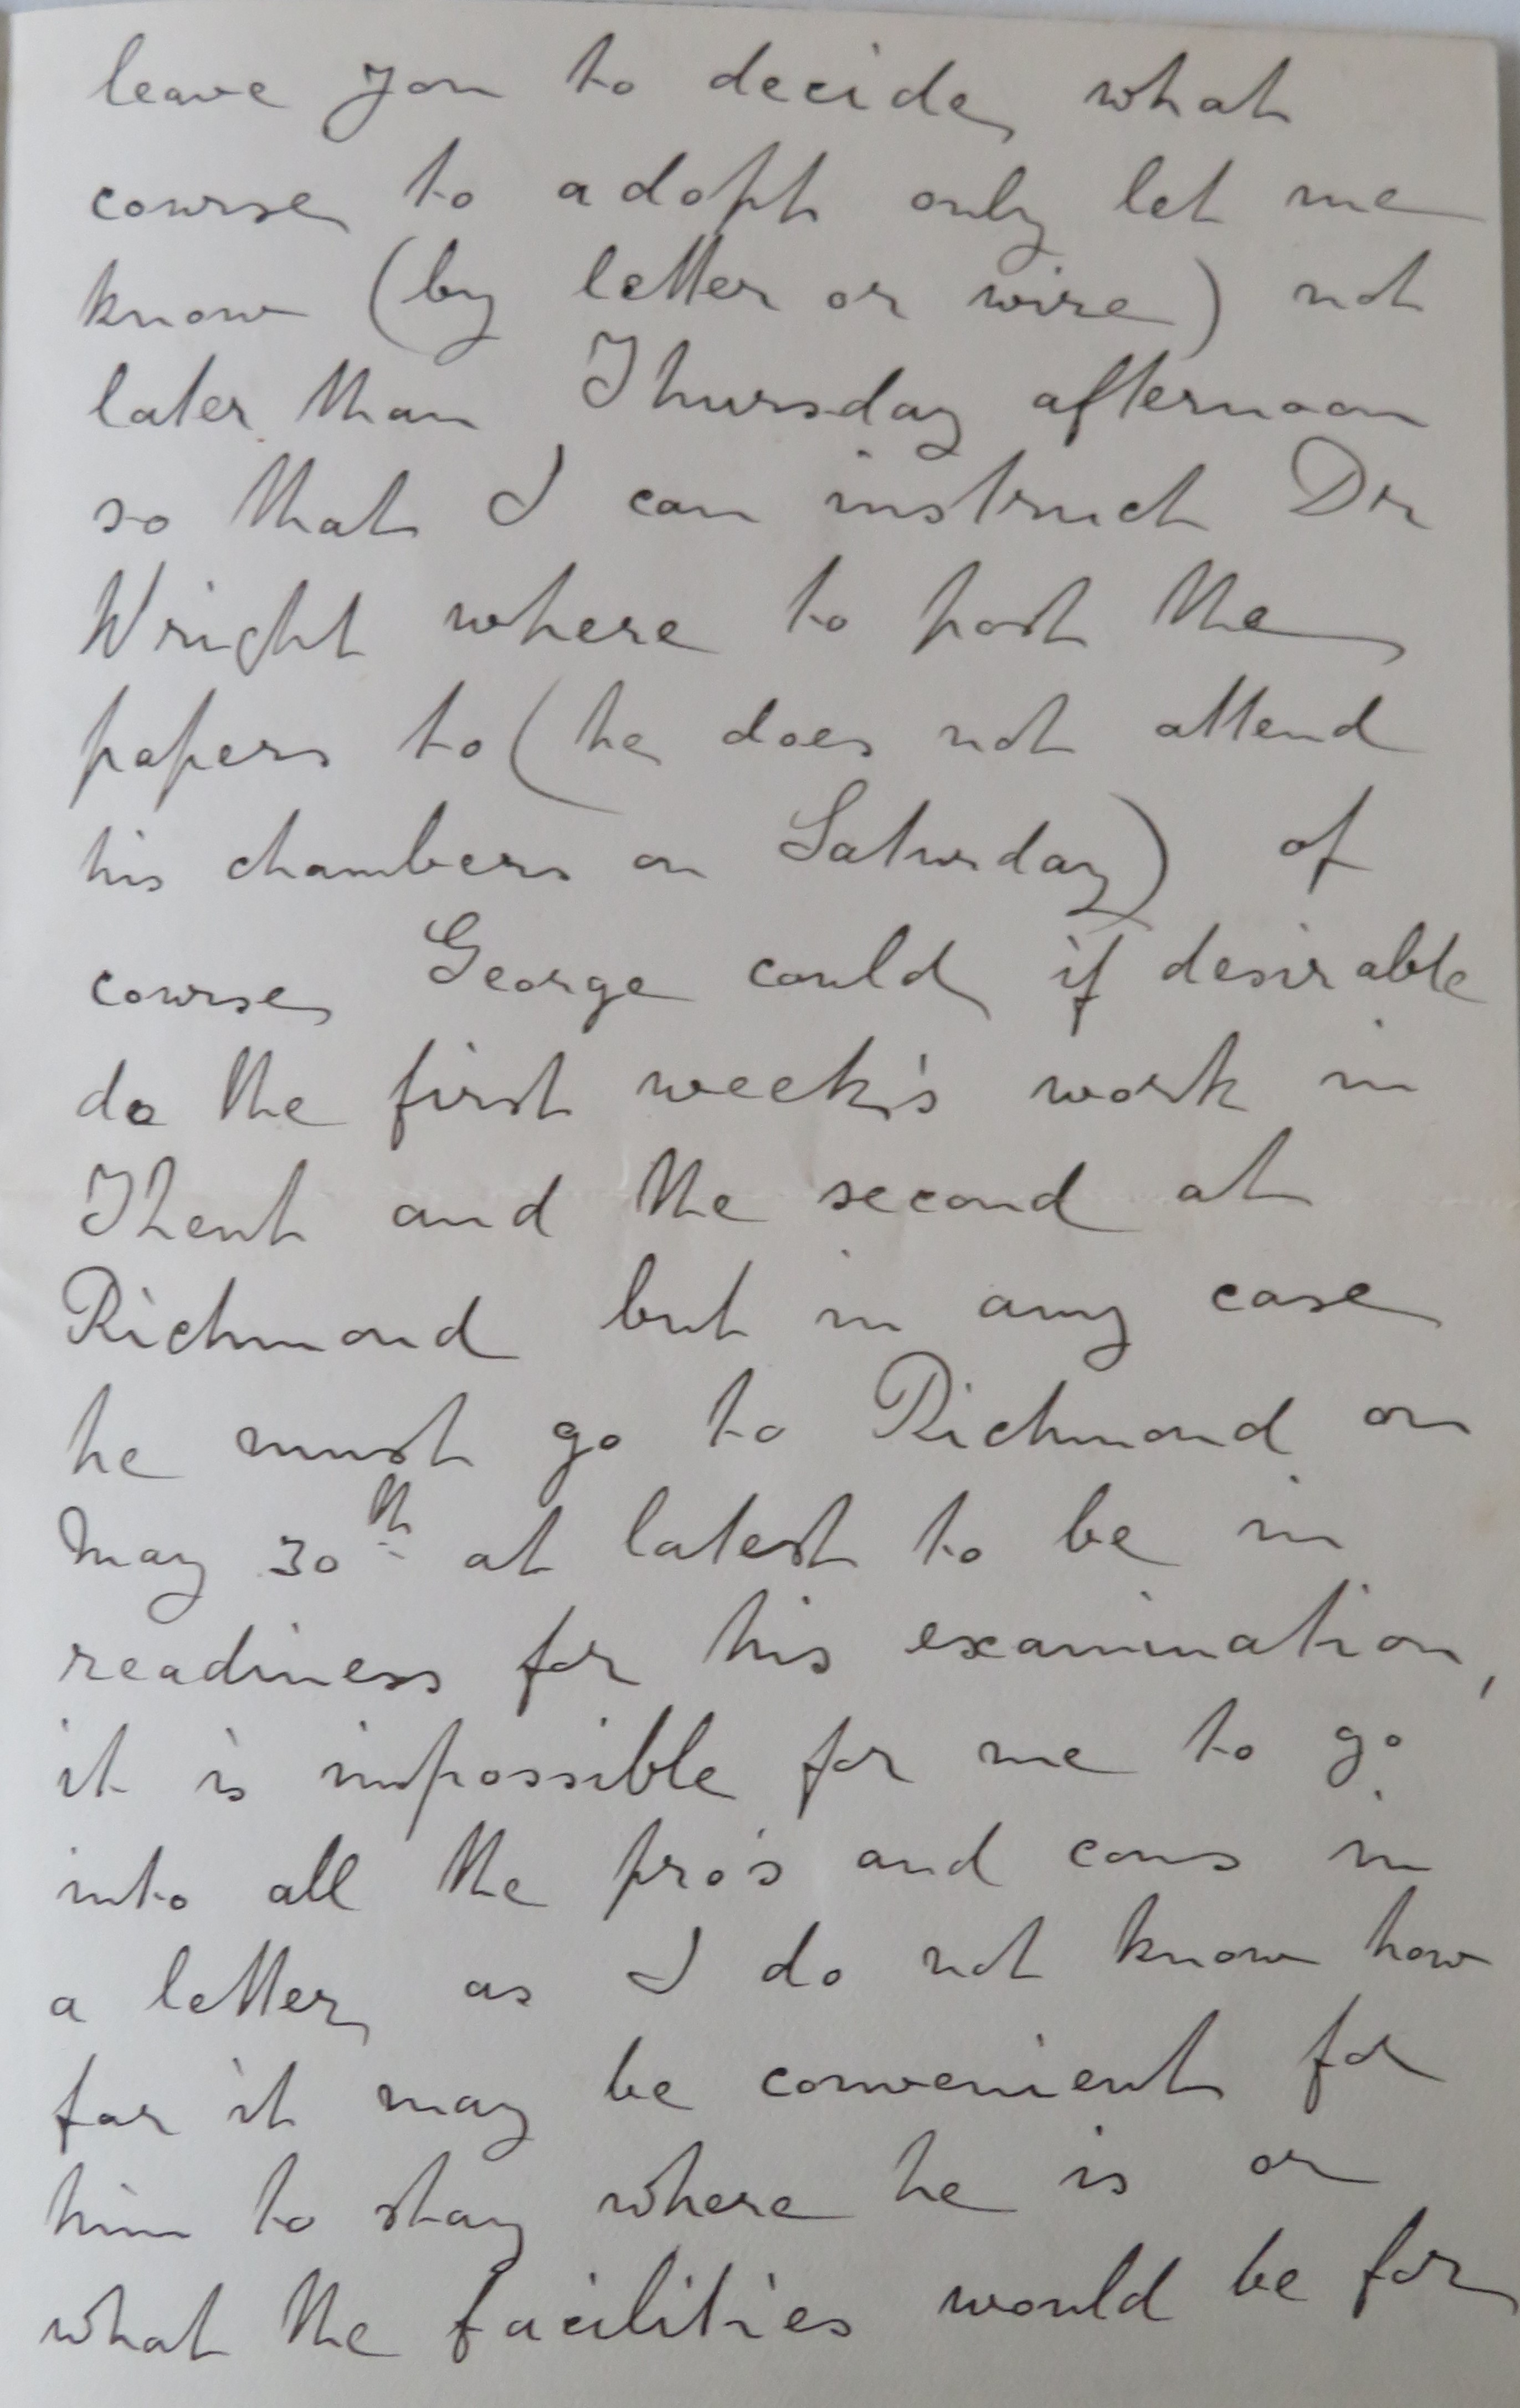 leave you to decide what
course to adopt only let me
know (by letter or wire) not
later than Thursday afternoon
so that I can instruct Dr
Wright where to post the
papers to (he does not attend
his chambers on Saturday) of
course George could if desirable
do the first week's work in
and the second at
Richmond but in any case
he must go to Richmond on
May 30th at latest to be in
readiness for his examination,
it is impossible for me to go
into all the pro's and cons in
a letter as I do not know how
far it may be convenient for
him to stay where he is or
what the facilities would be for